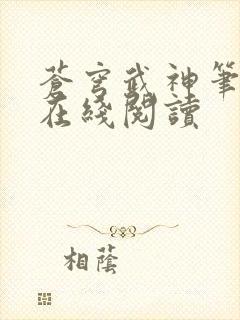 蒼穹武神筆
在綫閱讀
相蔭